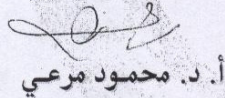 أ. د. محمود مرعي